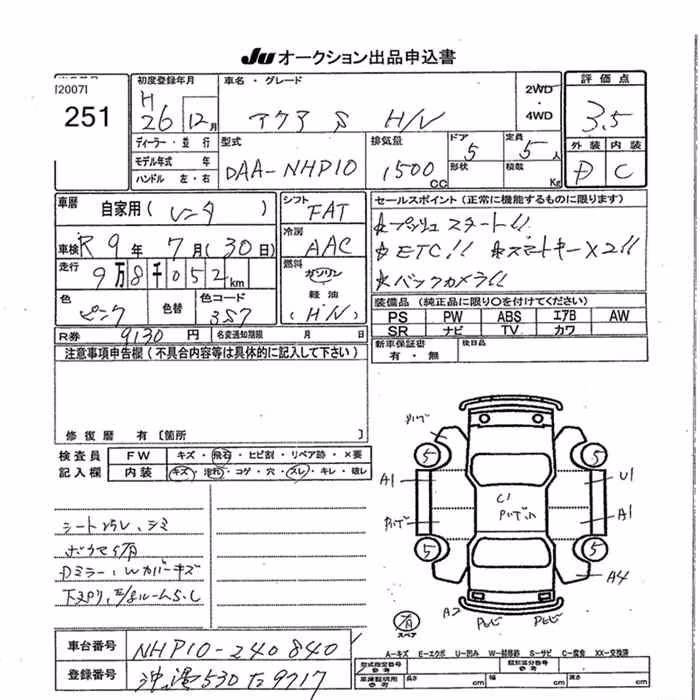 JU オークション出品申込書
[2007]
251
初度登録年月
H 26 年 12月
ディーラー・並行
モデル年式 年
ハンドル 左・右
車名・グレード
アクア S H/V
2WD・4WD
評価点
3.5
外装 内装
D C
型式
DAA-NHP10
排気量
1500 CC
ドア 5
形状
定員 5 人
積載 Kg
車歴
自家用(レンタ)
車検 R 9年 7月(30日)
走行
9万8千052 km
色
ピンク
色替
色コード
3S7
R券 9130円 名変通知期限 月 日
シフト
FAT
冷房
AAC
燃料
ガソリン
軽油
(H/V)
セールスポイント(正常に機能するものに限ります)
☆プッシュスタート!!
☆ETC!! ☆スマートキー×2!!
☆バックカメラ!!
装備品(純正品に限り○を付けてください)
PS PW ABS エアB AW
SR ナビ TV カワ
新車保証書
有・無
後日品
注意事項申告欄(不具合内容等は具体的に記入して下さい)
修復歴 有〔箇所 〕
検査員記入欄
FW キズ・飛石・ヒビ割・リペア跡・×要
内装 キズ・汚れ・コゲ・穴・スレ・キレ・破レ
シート汚レ、シミ
Dミラー、Wカバーキズ
車台番号 NHP10-240840
登録番号 沖縄530 9717
A1
U1
A1
A4
A2
C1
5
5
5
5
スペア
A-キズ E-エクボ U-凹み W-補修跡 S-サビ C-腐食 XX-交換済
型式指定番号 参考
類別区分番号 参考
車庫証明用 参考
長さ cm 幅 cm 高さ cm